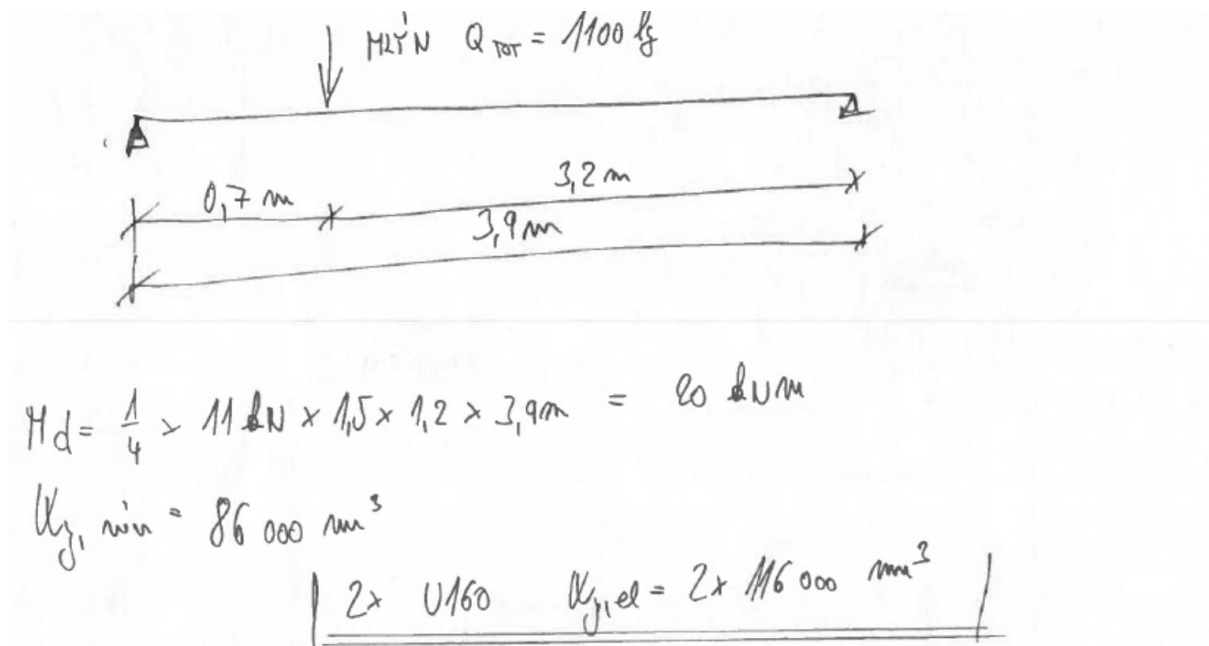 MLÝN Q TOT = 1100 kg
0,7 m
3,2 m
3,9 m
Md = 1/4 × 11 kN × 1,5 × 1,2 × 3,9m = 20 kNm
Wy, min = 86 000 mm³
2x U160 Wy,el = 2x 116 000 mm³